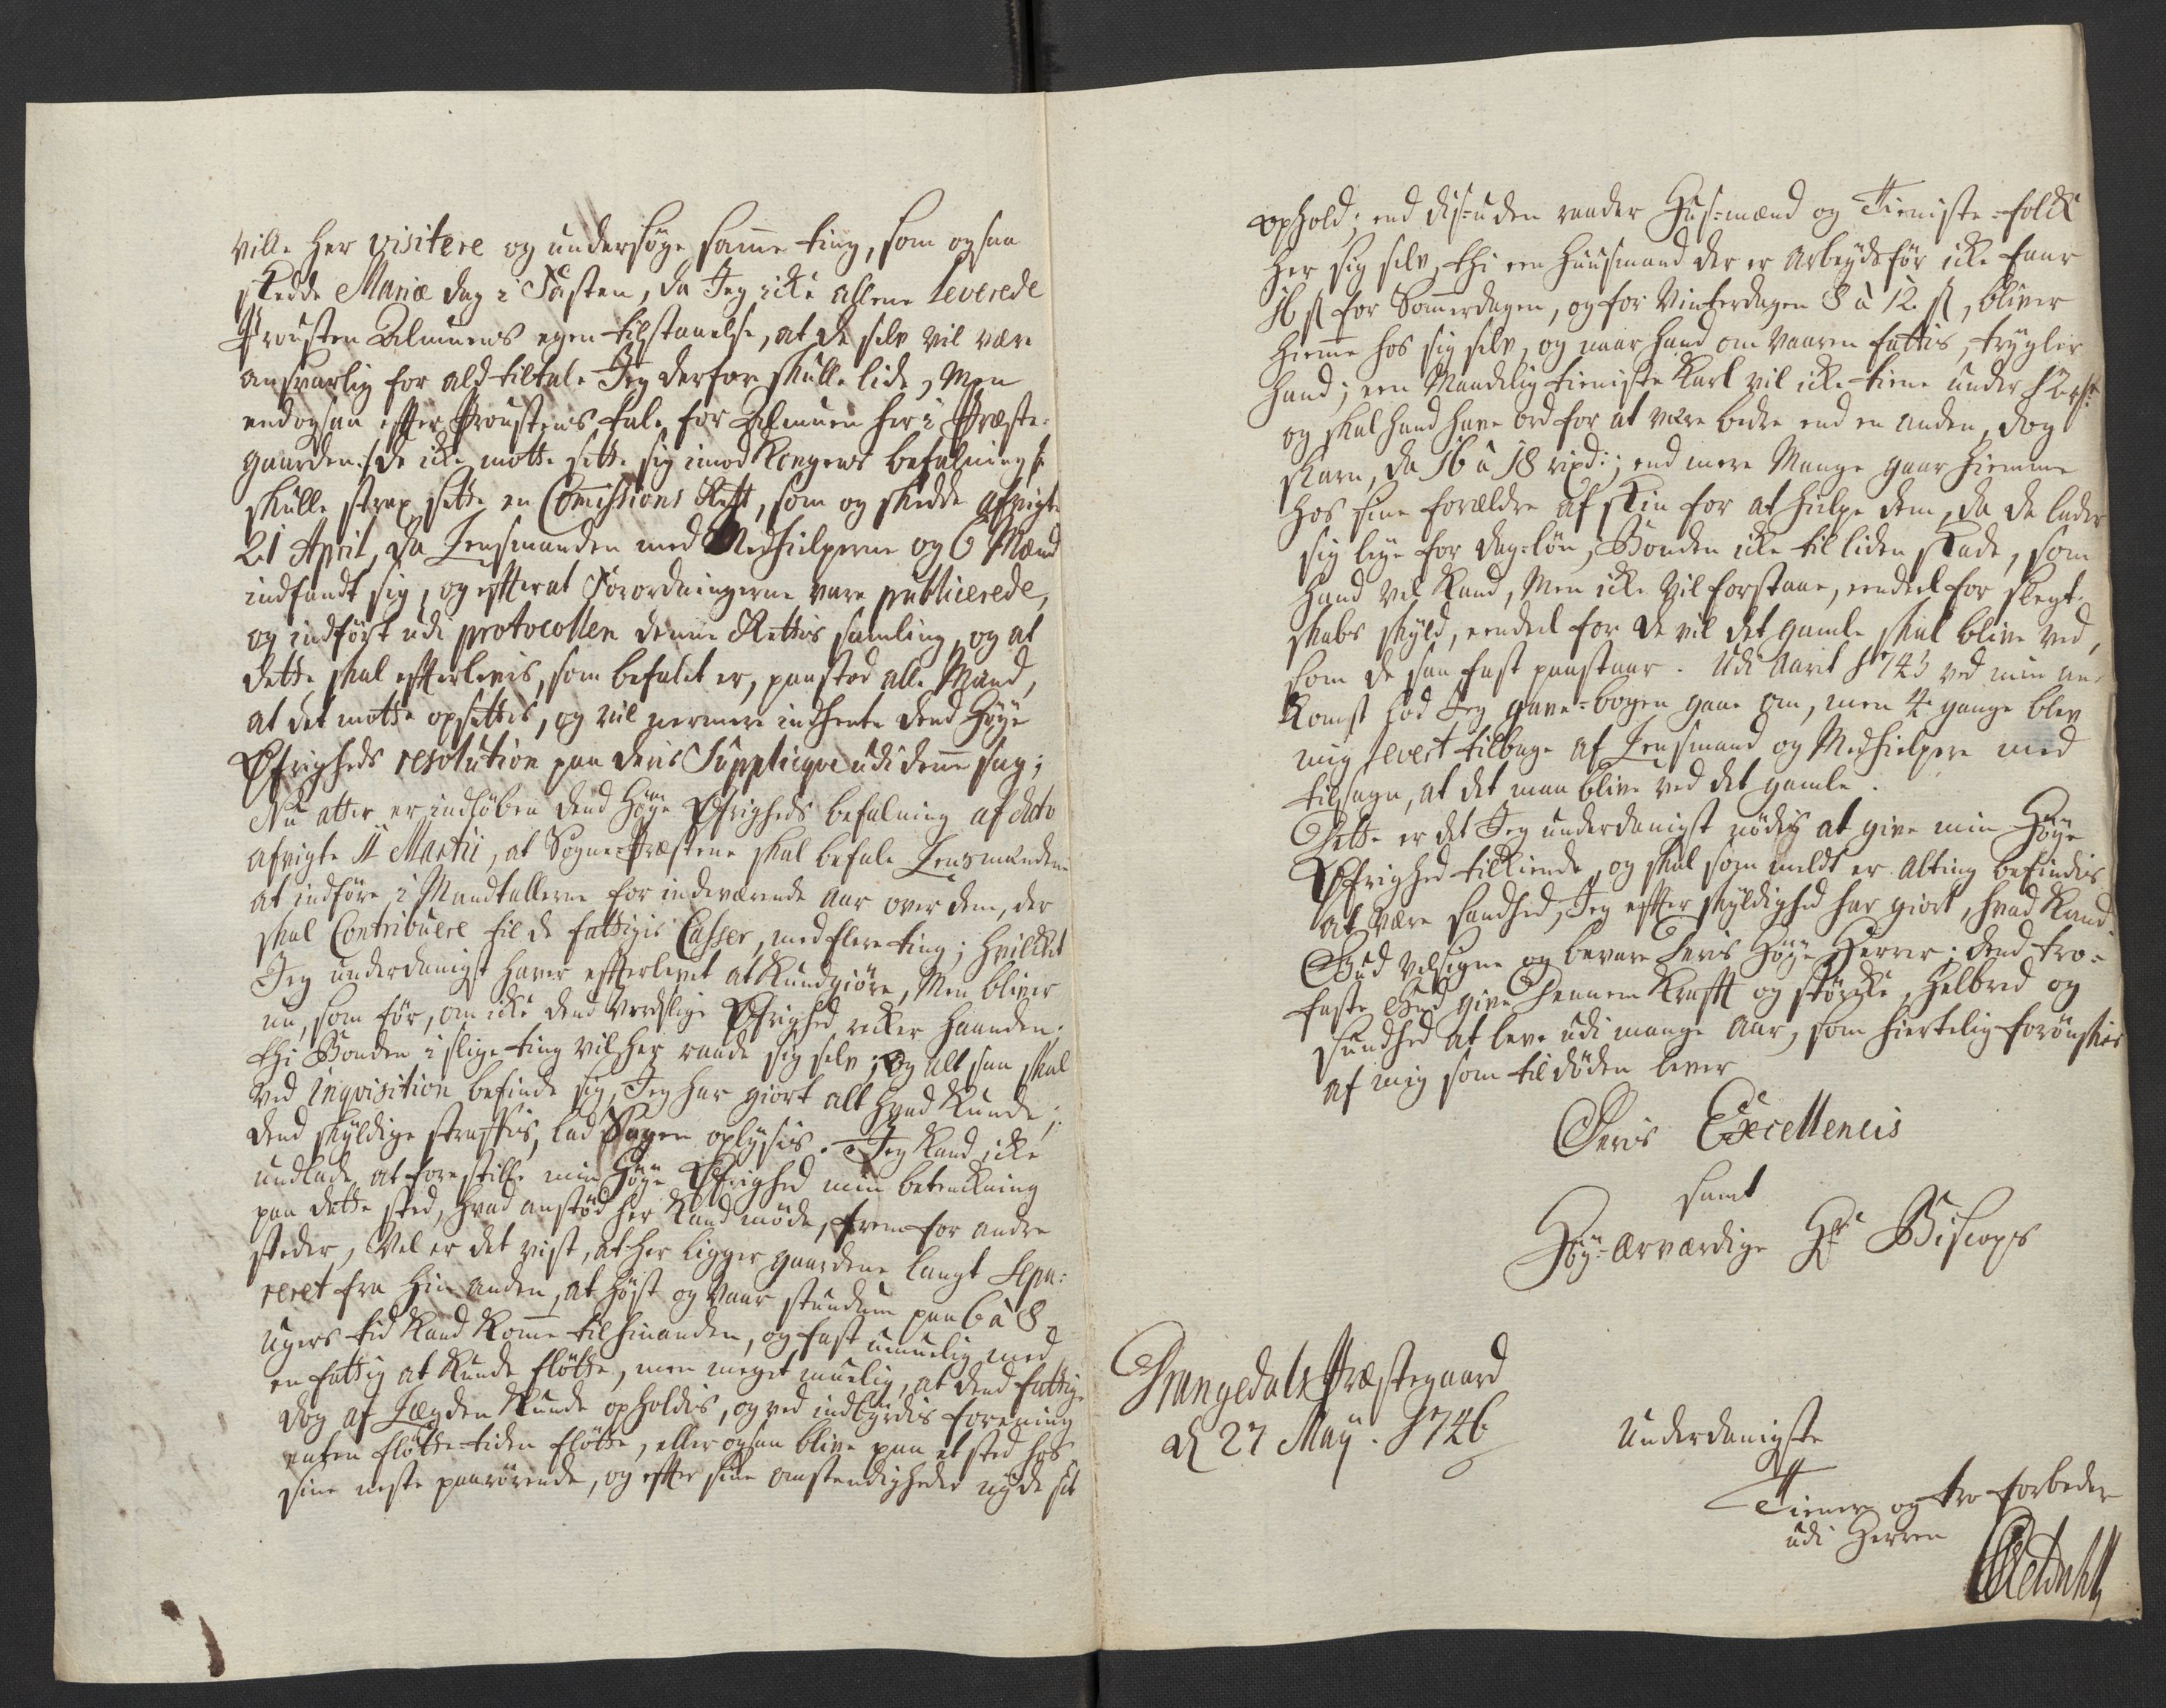 ville her visitere og undersøge samme ting, som ogsaa
skedde Mariæ dag i Fasten, da Jeg icke allene leverede
Prousten Almuens egen tilstaaelse, at de selv vil være
ansvarlig for ald tiltale Jeg derfor skulle lide, Men
endogsaa efter Proustens tale for Almuen her i Præste-
gaarden /: de icke motte sette sig imod Kongens befalning :/
skulle strax sette en Commissions Rett, som og skedde afvigte
21 April, da Lensmanden med Medhielperne og 6 Mænd
indfandt sig, og efterat Forordningerne vare publicerede,
og indført udi protocollen denne Rettis samling, og at
dette skal efterlevis, som befalet er, paastod alle Mænd,
at det motte opsettis, og vil nermere indhente dend Høye
Øfrigheds resolution paa deris Supplique udi denne sag;
Nu atter er indløben dend Høye Øfrigheds befalning af dato
afvigte 11 Martii, at Sogne-Præstene skal befale Lensmændene
at indføre i Mandtallerne for indeværende aar over dem, der
skal Contribuere til de fattigis Casser, med flere ting; hvilket
Jeg underdanigst haver efterlevet at kundgiøre, Men bliver
nu, som før, om icke dend Verdslige Øfrighed recker Haanden;
thi Bonden i slige ting vil her raade sig selv; og alt saa skal
ved inqvisition befinde sig, Jeg har giort alt hvad kunde;
dend skyldige straffis, lad Sagen oplysis. Jeg kand icke
undlade at forestille min Høye Øfrighed min betenckning
paa dette sted, hvad anstød her kand møde, frem for andre
steder, Vel er det vist, at her ligger gaardene langt sepa-
reret fra hin anden, at høst og vaar stundum paa 6 à 8
ugers tid kand komme til hinanden, og fast umuelig med
en fattig at kunde fløtte, men meget muelig, at dend fattige
dog af Lægden kunde opholdis, og ved indbyrdis forening
enten fløtte-tiden fløtte, eller ogsaa blive paa et sted hos
sine neste paarørende, og efter sine omstendigheder nyde sit
ophold; end dis-uden raader Huus-mænd og Tieniste-folck
her sig selv, thi een Huusmand der er arbeydsfør icke faar
16 s for Sommerdagen, og for Vinterdagen 8 à 12 s, bliver
hiemme hos sig selv, og naar hand om Vaaren fattis, trygler
hand; een Mandelig tieniste Karl vil icke tiene under 12 rdr
og skal hand have ord for at være bedre end en anden, dog
skarn, da 16 à 18 rixd:; end mere Mange gaar hiemme
hos sine forældre af skin for at hielpe dem, da de lader
sig leye for dag-løn, Bonden icke til liden skade, som
hand vel kand, Men icke vil forstaae, eendeel for slegt-
skabs skyld, eendeel for de vil det gamle skal blive ved,
som de saa fast paastaar. Udi Aaret 1743 ved min an-
komst lod Jeg gave-bogen gaae om, men 4 gange blev
mig levert tilbage af Lensmand og Medhielpere med
tilsagn, at det maa blive ved det gamle.
Dette er det Jeg underdanigst nødes at give min Høye
Øfrighed tilkiende, og skal som meldt er alting befindis
at være sandhed, Jeg efter skyldighed har giort, hvad kand.
Gud velsigne og bevare Deris Høye Herrer; dend tro-
faste Gud give hannem Krafft og störcke, helbred og
sundhed at leve udi mange Aar, som hiertelig forønskes
af mig som til døden lever
Deris Excellencis
samt
Høy-ærværdige Hr Biscops
Drangedals Præstegaard
d 27 Maÿ. 1746
Underdanigste
Tiener og tro forbeder
udi Herren